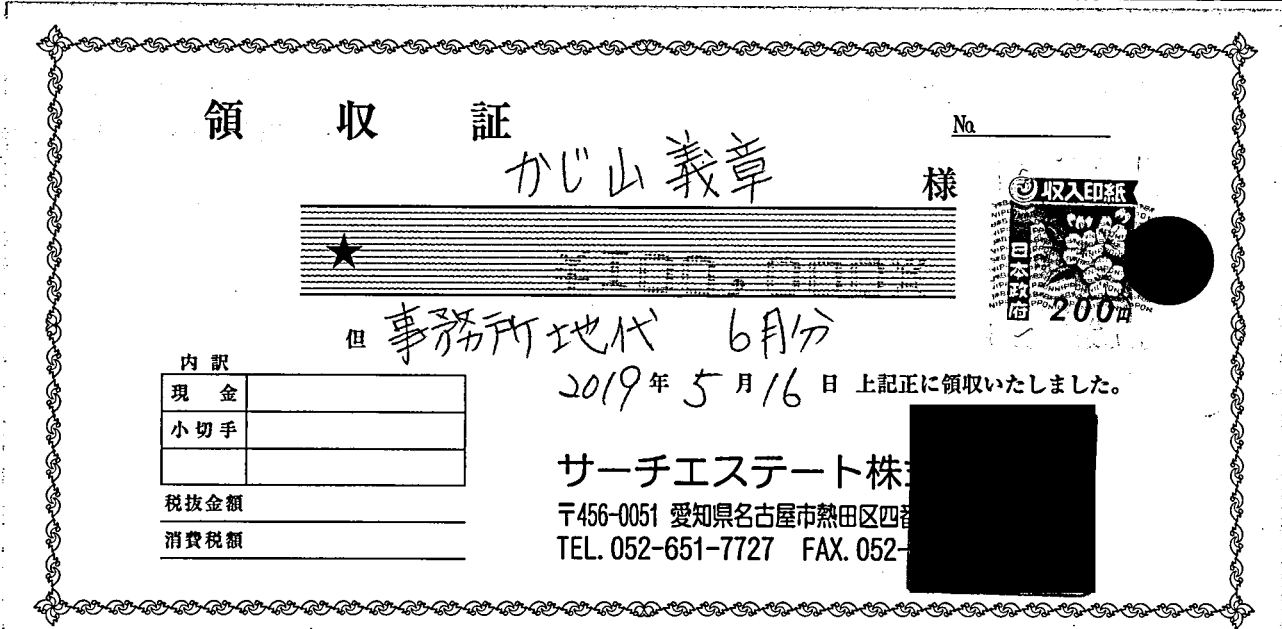 領 収 証
No.
かじ山義章 様
収入印紙
日本政府
200円
★ ¥100,000※
但 事務所地代 6月分
2019年 5月16日 上記正に領収いたしました。
内訳
現 金
小切手
税抜金額
消費税額
サーチエステート株
〒456-0051 愛知県名古屋市熱田区四番
TEL. 052-651-7727 FAX. 052-